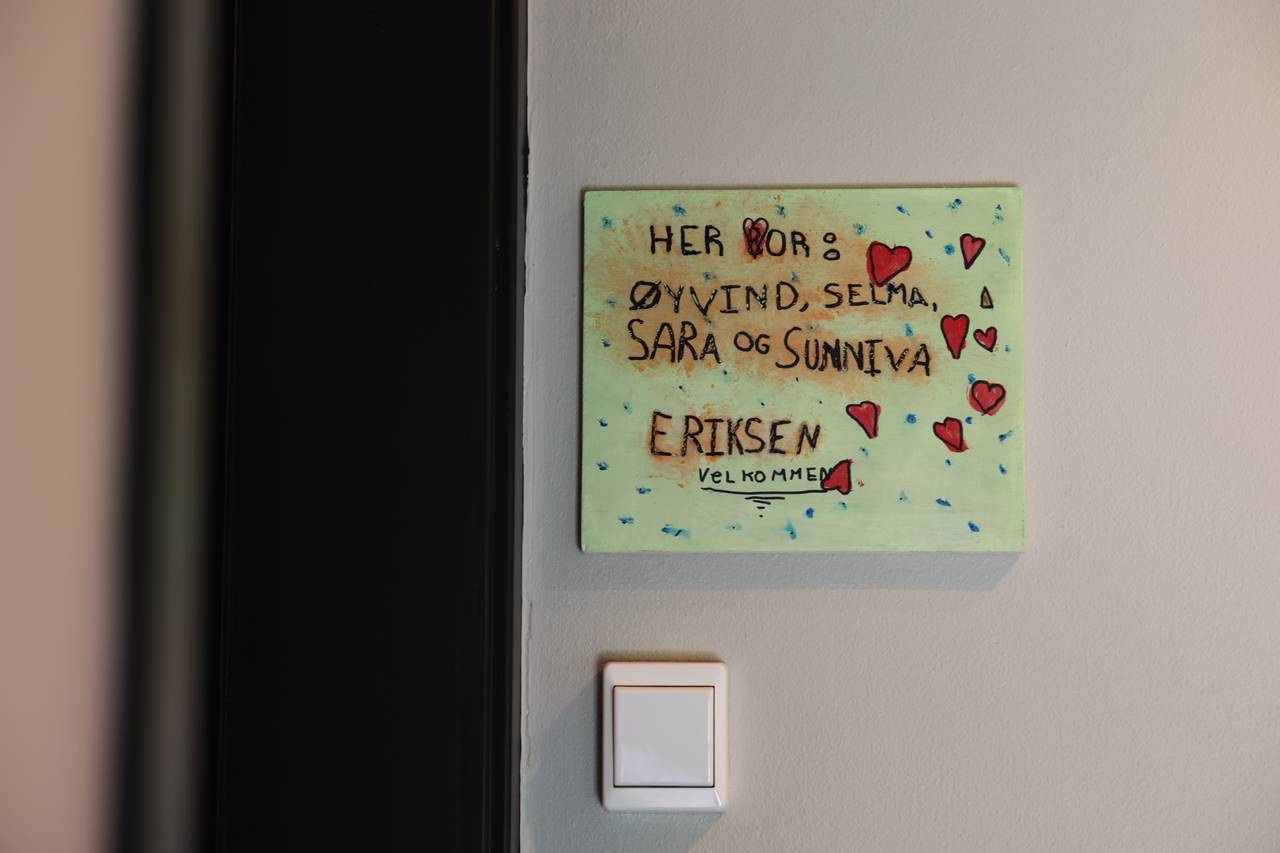 HER BOR:
ØYVIND, SELMA,
SARA OG SUNNIVA
ERIKSEN
VeLKOMMEN